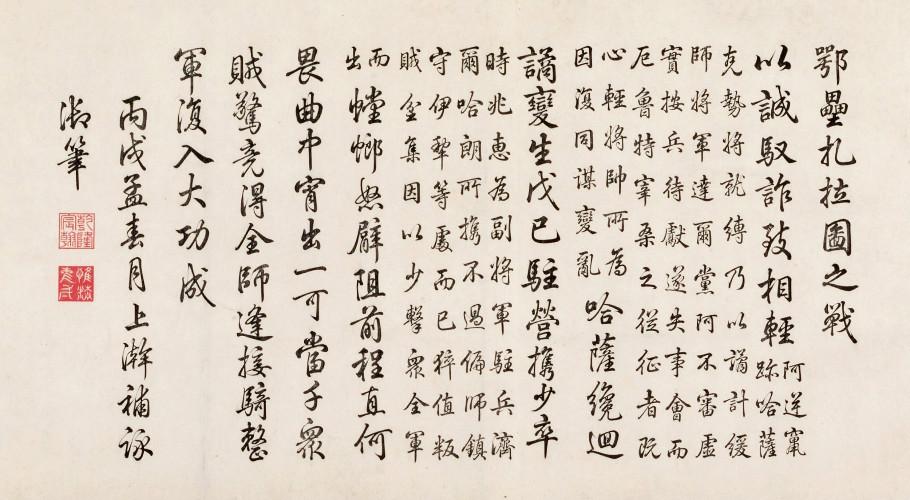 鄂壘扎拉圖之戰
以誠馭詐致相輕
阿逆竄
跡哈薩
克勢將就縛乃以譎計緩
師將軍達爾黨阿不審虛
實按兵待獻遂失事會而
厄魯特宰桑之從征者既
心輕將帥所為
因復同謀變亂
哈薩纔迴
譎變生戊已駐營攜少卒
時兆惠為副將軍駐兵濟
爾哈朗所攜不過偏師鎮
守伊犂等處而已猝值叛
賊坌集因以少擊眾全軍
而
出
螳螂怒臂阻前程直何
畏曲中宵出一可當千眾
賊驚竟得全師逢接騎整
軍復入大功成
丙戌孟春月上澣補詠
御筆
乾隆宸翰
惟精惟一